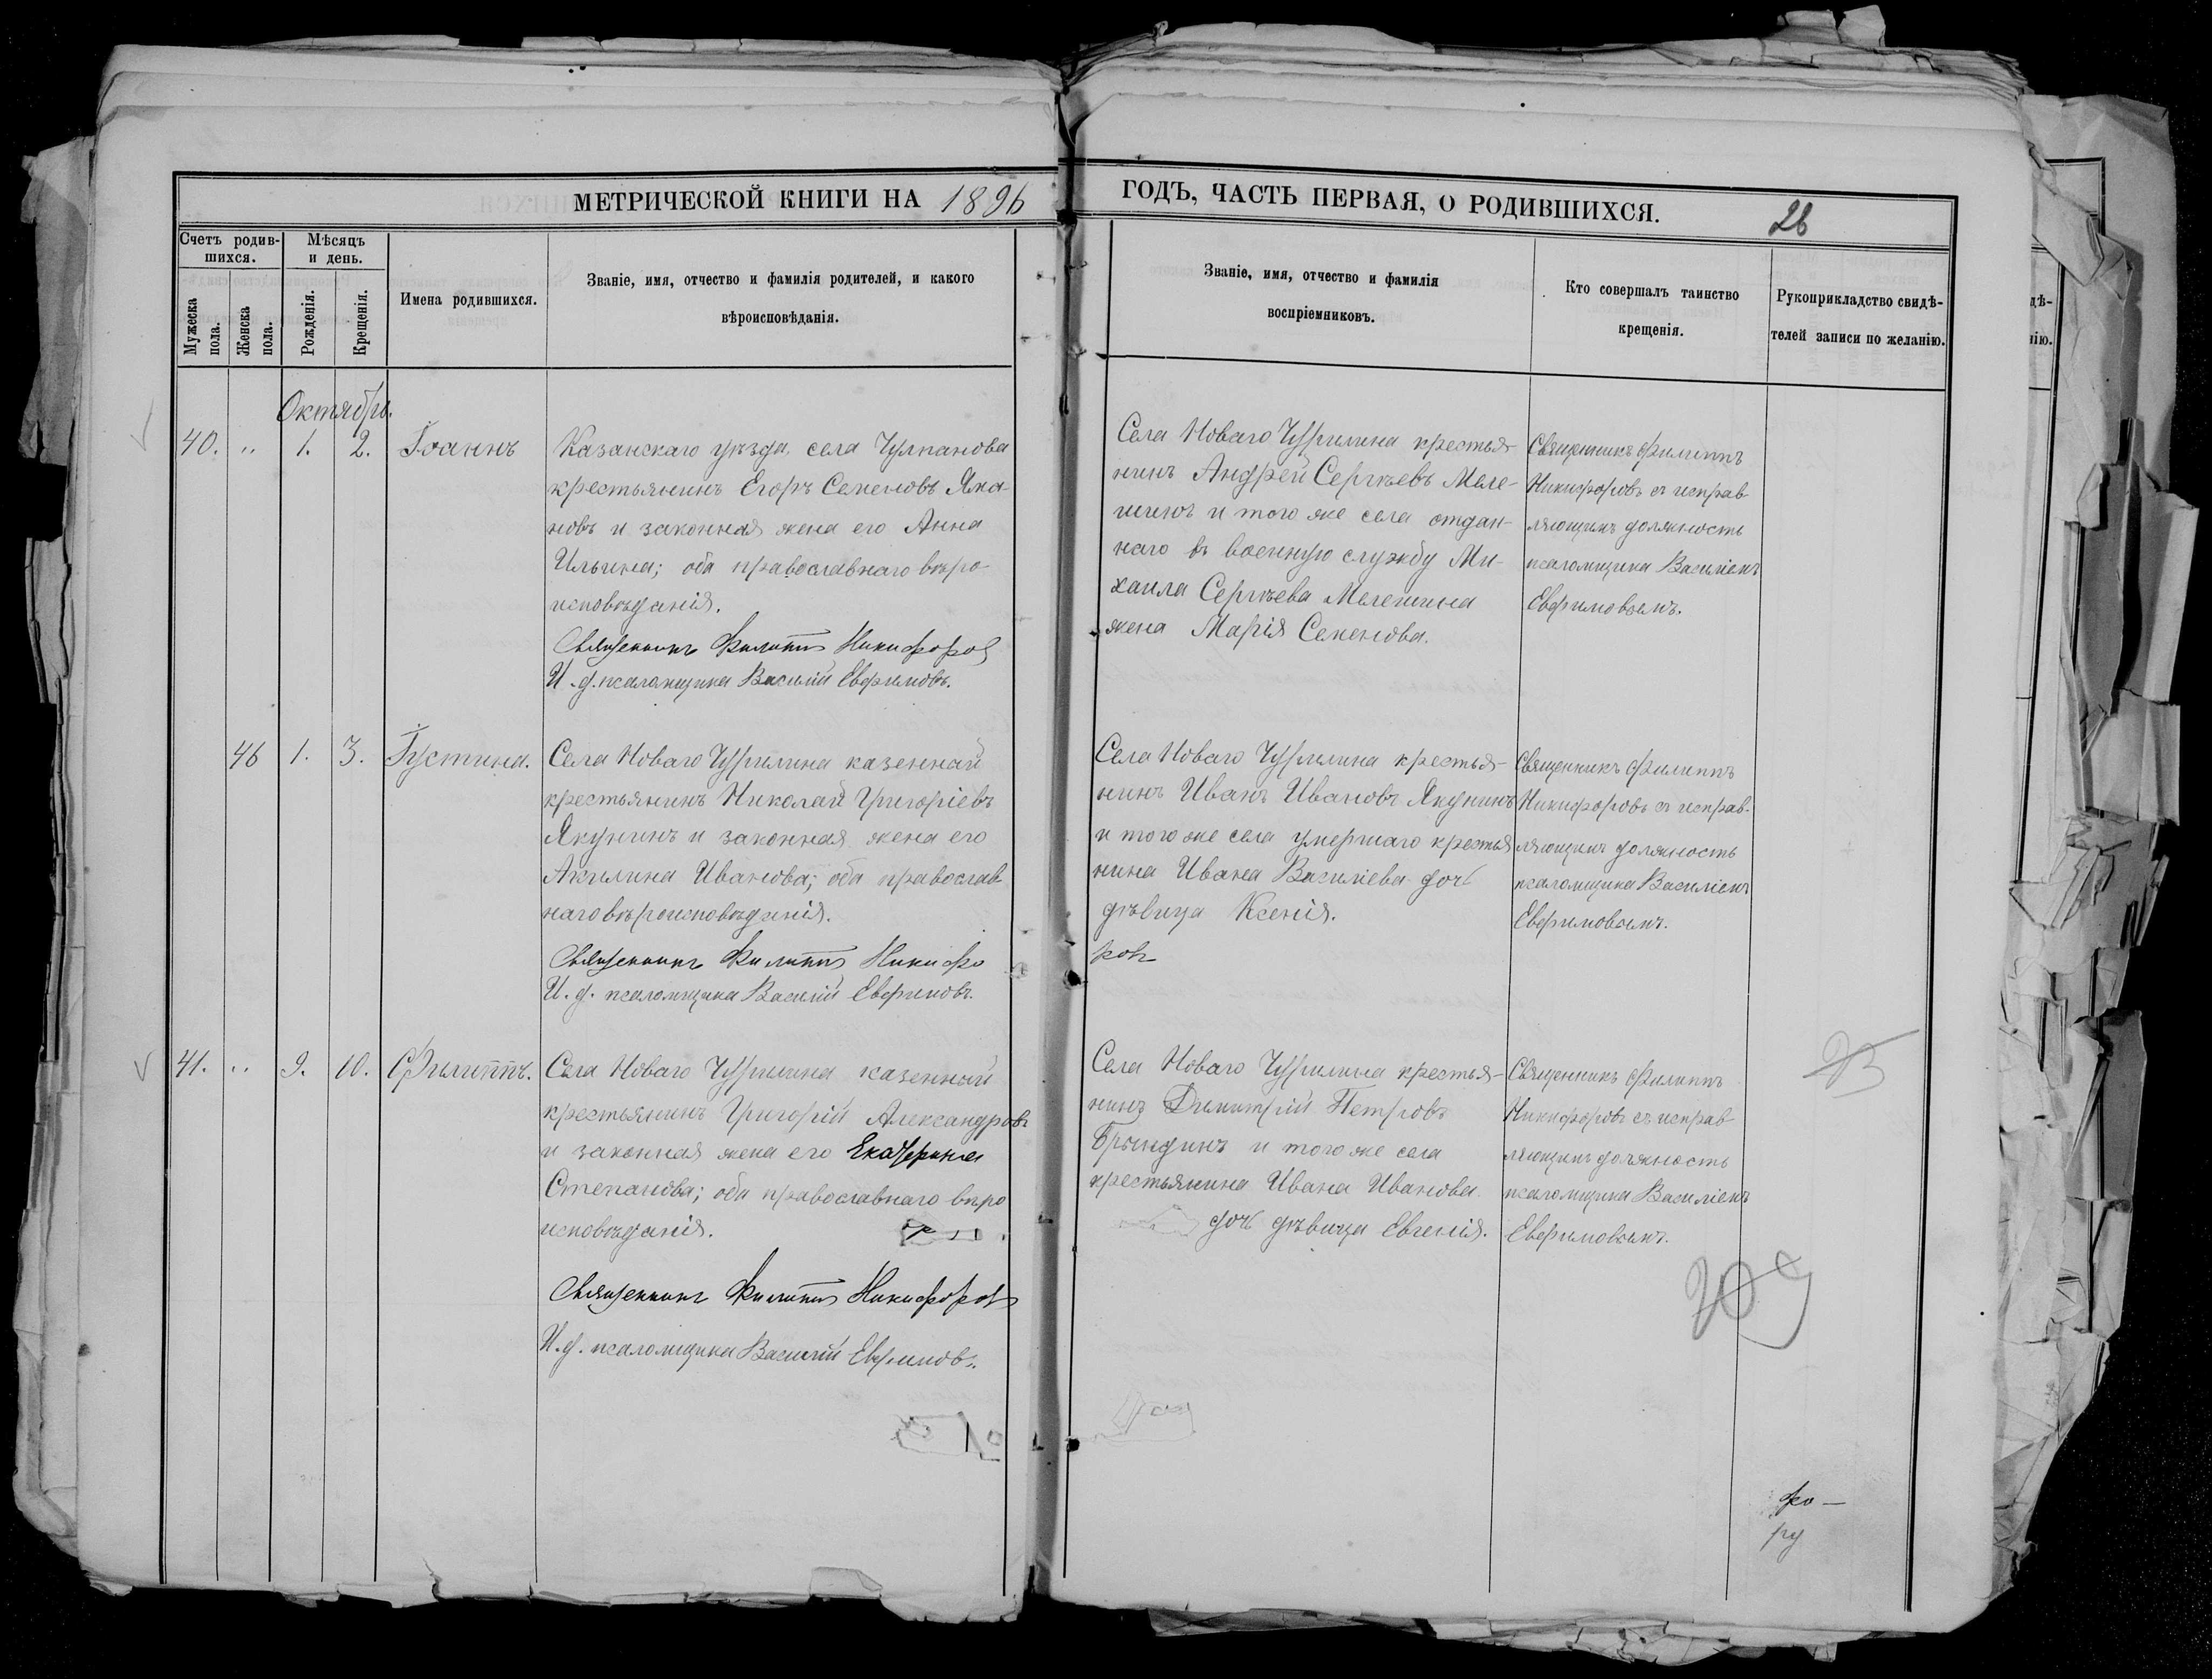 МЕТРИЧЕСКОЙ КНИГИ НА 1896
ГОДЪ, ЧАСТЬ ПЕРВАЯ, О РОДИВШИХСЯ.
26
Счетъ родив-
шихся.
Мѣсяцъ
и день.
Мужеска
пола.
Женска
пола.
Рожденія.
Крещенія.
Имена родившихся.
Званіе, имя, отчество и фамилія родителей, и какого
вѣроисповѣданія.
Званіе, имя, отчество и фамилія
воспріемниковъ.
Кто совершалъ таинство
крещенія.
Рукоприкладство свидѣ-
телей записи по желанію.
Октябрь.
40. " 1. 2. Іоаннъ
Казанскаго уѣзда, села Чулпанова
крестьянинъ Егоръ Семеновъ Яма-
новъ и законная жена его Анна
Ильина; оба православнаго вѣро-
исповѣданія.
Священникъ Филиппъ Никифоровъ
И. д. псаломщика Василій Евфимовъ.
Села Новаго Чурилина крестья-
нинъ Андрей Сергѣевъ Меле-
шинъ и того же села отдан-
наго въ военную службу Ми-
хаила Сергѣева Мелешина
жена Марія Семенова.
Священникъ Филиппъ
Никифоровъ съ исправ-
ляющимъ должность
псаломщика Василіемъ
Евфимовымъ.
46 1. 3. Іустина.
Села Новаго Чурилина казенный
крестьянинъ Николай Григоріевъ
Якунинъ и законная жена его
Акилина Иванова; оба православ-
наго вѣроисповѣданія.
Священникъ Филиппъ Никифо
И. д. псаломщика Василій Евфимовъ.
Села Новаго Чурилина крестья-
нинъ Иванъ Ивановъ Якунинъ
и того же села умершаго крестья
нина Ивана Василіева дочь
дѣвица Ксенія.
ровъ
Священникъ Филиппъ
Никифоровъ съ исправ-
ляющимъ должность
псаломщика Василіемъ
Евфимовымъ.
41. " 9. 10. Филиппъ.
Села Новаго Чурилина казенный
крестьянинъ Григорій Александровъ
и законная жена его Екатерина
Степанова; оба православнаго вѣро
исповѣданія.
Священникъ Филиппъ Никифоровъ
И. д. псаломщика Василій Евфимовъ.
Села Новаго Чурилина крестья-
нинъ Димитрій Петровъ
Брындинъ и того же села
крестьянина Ивана Иванова
дочь дѣвица Евгенія.
Священникъ Филиппъ
Никифоровъ съ исправ-
ляющимъ должность
псаломщика Василіемъ
Евфимовымъ.